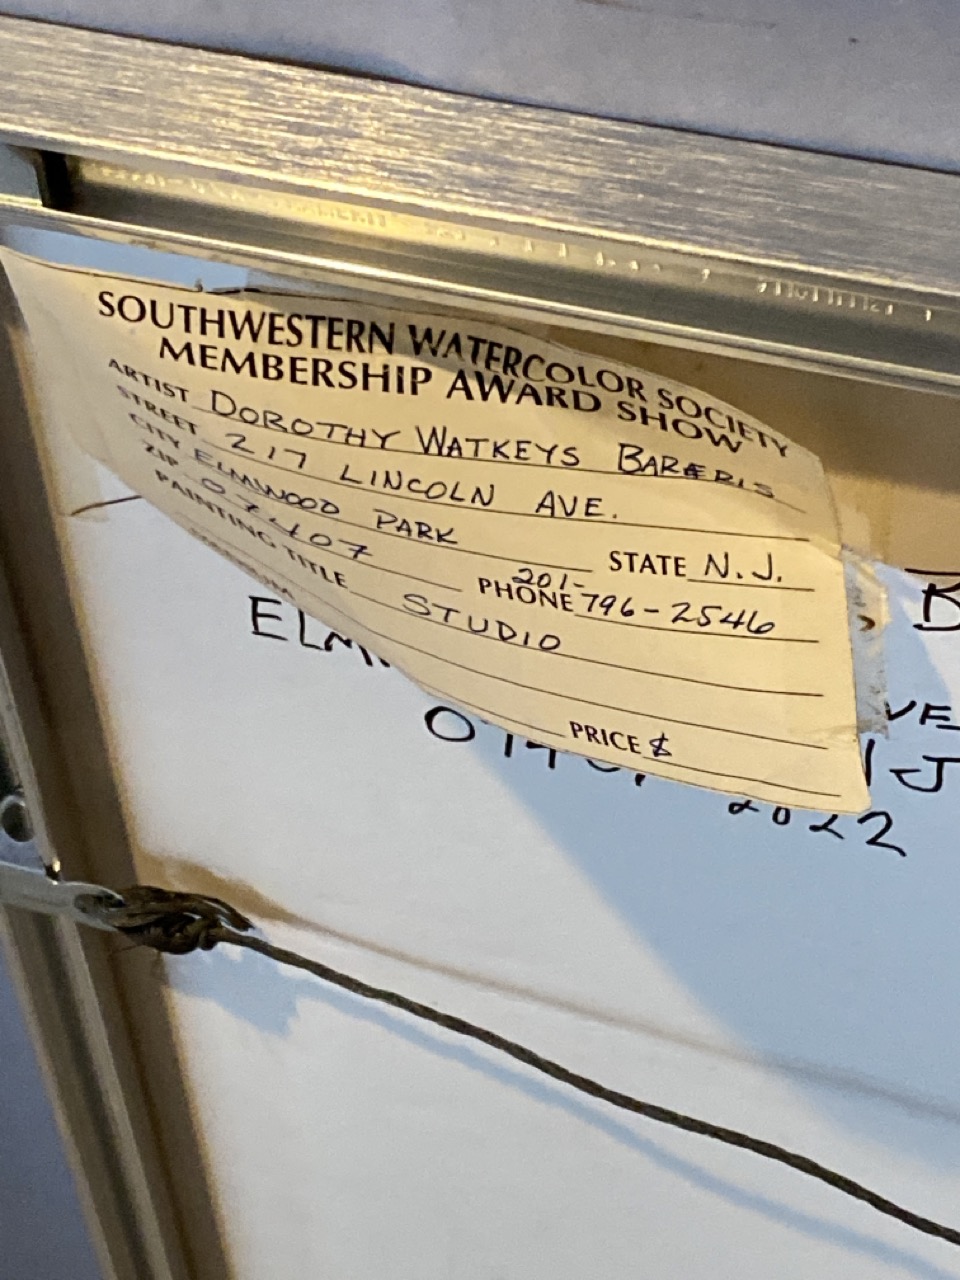 SOUTHWESTERN WATERCOLOR SOCIETY
MEMBERSHIP AWARD SHOW
ARTIST DOROTHY WATKEYS BARBERIS
STREET 217 LINCOLN AVE.
CITY ELMWOOD PARK STATE N.J.
ZIP 07407 PHONE 201-796-2546
PAINTING TITLE STUDIO
PRICE $